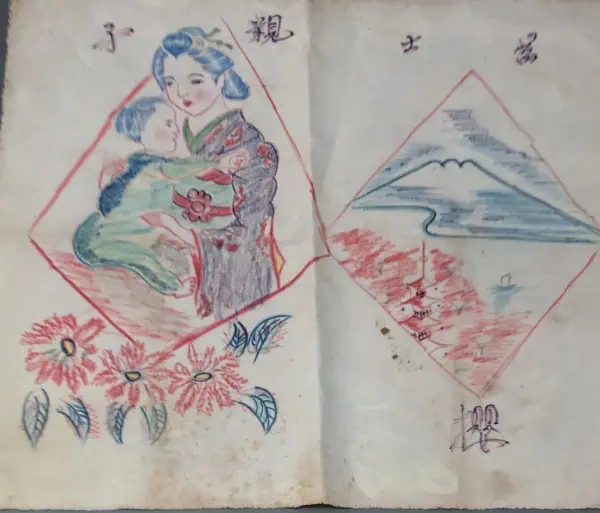 親子
富士
櫻